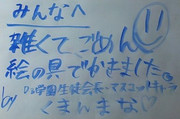 みんなへ
雑くてごめん
絵の具でかきました。
by 学園生徒会長・マスコットキャラ
くまんまな♡